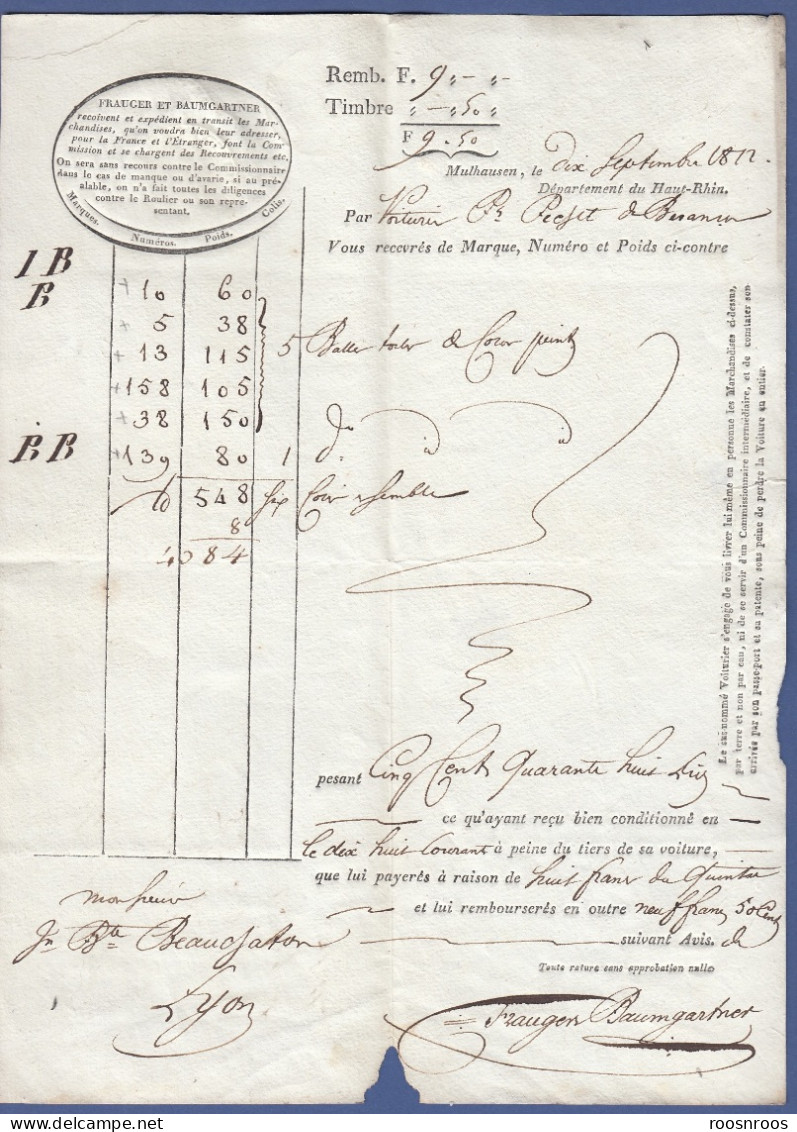 Remb. F. 9 „ - „ -
Timbre „ - „ 50 „
F 9 . 50
FRAUGER ET BAUMGARTNER
recoivent et expédient en transit les Mar-
chandises, qu'on voudra bien leur adresser,
pour la France et l'Étranger, font la Com-
mission et se chargent des Recouvrements etc.
On sera sans recours contre le Commissionnaire
dans le cas de manque ou d'avarie, si au pré-
alable, on n'a fait toutes les diligences
contre le Roulier ou son repre-
sentant.
Marques. Numéros. Poids. Colis.
Mulhausen, le dix Septembre 1812.
Département du Haut-Rhin.
Par Voiturier de Besançon
Vous recevrés de Marque, Numéro et Poids ci-contre
1 B
B
+ 10 60
+ 5 38
+ 13 115 5 Balles toiles de Coton peint
+ 158 105
+ 38 150
BB + 139 80 1 do „ „
10 548 Six Colis ensemble
8
40 84
Le susnommé Voiturier s'engage de vous livrer lui même en personne les Marchandises ci-dessus,
par terre et non par eau, ni de se servir d'un Commissionnaire intermédiaire, et de constater son
arrivés par son passe-port et sa patente, sous peine de perdre la Voiture en entier.
pesant Cinq Cent Quarante huit
ce qu'ayant reçu bien conditionné en
le dix huit Courant à peine du tiers de sa voiture,
que lui payerés à raison de huit francs du Quintal
et lui rembourserés en outre neuf francs 50 Cent
suivant Avis. de
Toute rature sans approbation nulle
Monsieur
Jn Bte
Lyon
Frauger & Baumgartner
roosnroos